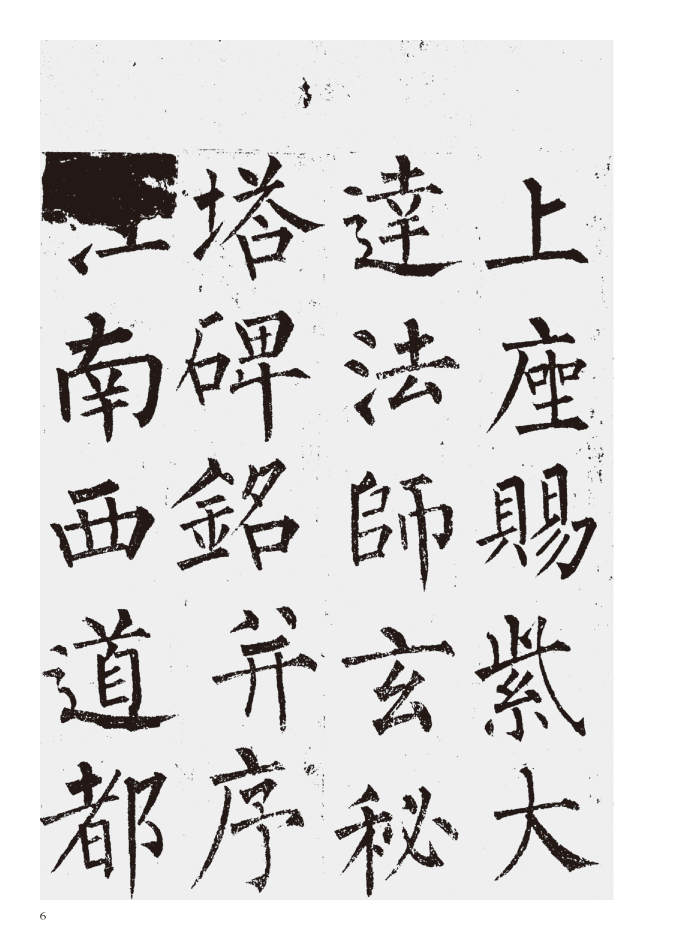 上座賜紫大
達法師玄秘
塔碑銘并序
江南西道都
6